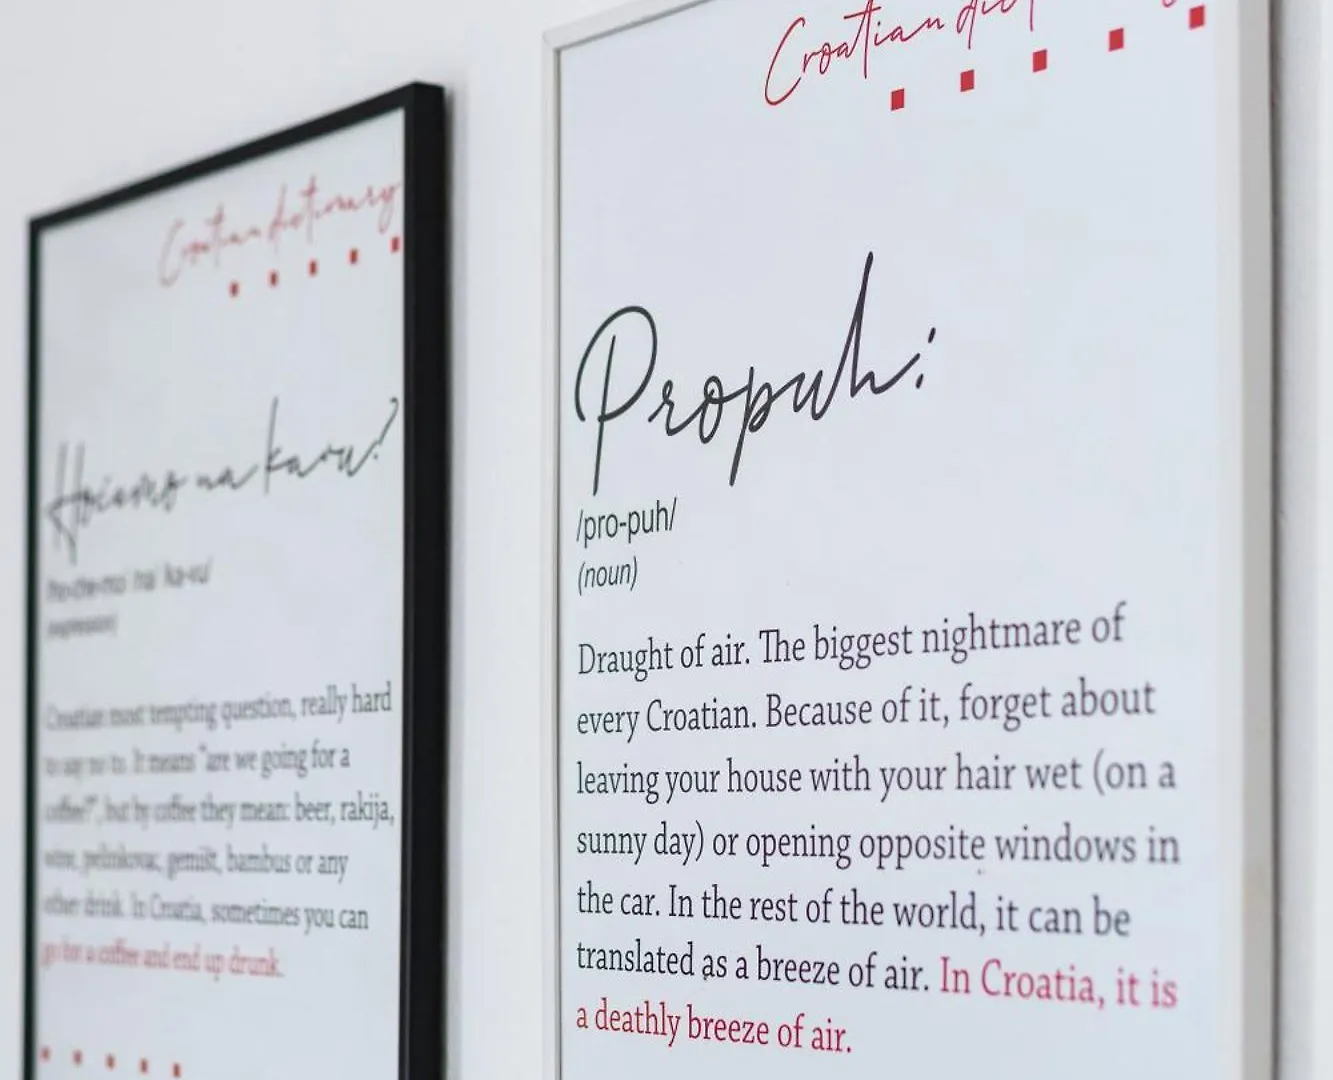 Croatian dictionary
Hoćemo na kavu?
/ho-che-mo na ka-vu/
(expression)
Croatian most tempting question, really hard
to say no to. It means "are we going for a
coffee?", but by coffee they mean: beer, rakija,
wine, pelinkovac, gemišt, bambus or any
other drink. In Croatia, sometimes you can
go for a coffee and end up drunk.
Croatian
Propuh:
/pro-puh/
(noun)
Draught of air. The biggest nightmare of
every Croatian. Because of it, forget about
leaving your house with your hair wet (on a
sunny day) or opening opposite windows in
the car. In the rest of the world, it can be
translated as a breeze of air. In Croatia, it is
a deathly breeze of air.